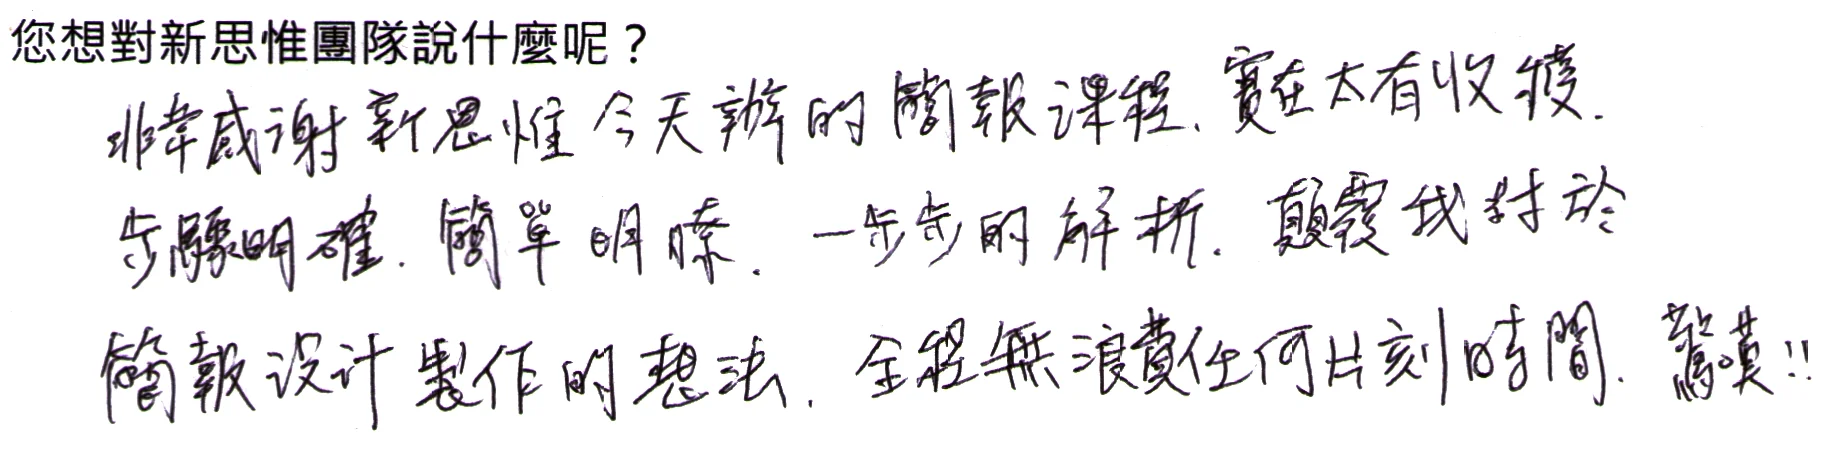 您想對新思惟團隊說什麼呢？
非常感謝新思惟今天辦的簡報課程、實在太有收穫.
步驟明確. 簡單明瞭. 一步步的解析. 顛覆我對於
簡報設計製作的想法. 全程無浪費任何片刻時間. 驚嘆!!